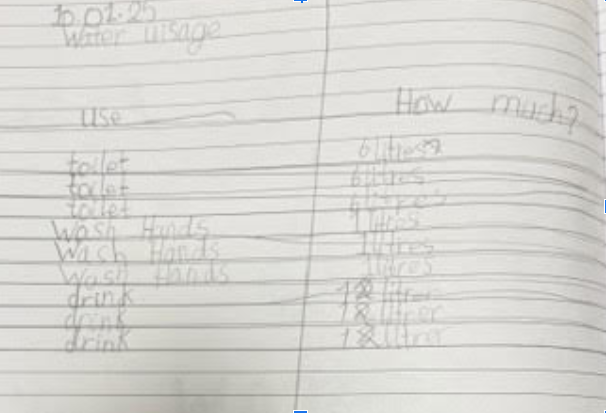 10.01.25
Water uisage
Use How much?
toilet 6 litres
toilet 6 litres
toilet 6 litre's
Wash Hands 1 litres
Wach Hands 1 litres
Wash Hands 1 litres
drink
drink
drink